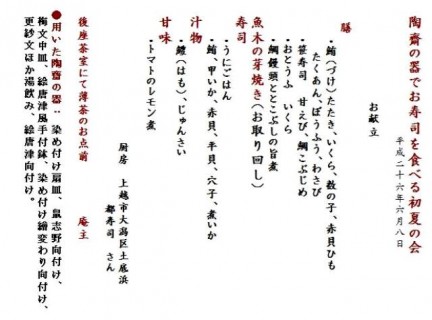 陶齋の器でお寿司を食べる初夏の会
平成二十六年六月八日
お献立
膳
・鮪(づけ)たたき、いくら、数の子、赤貝ひも
たくあん、ぼうふう、わさび
・笹寿司　甘えび、鯛こぶじめ
・おとうふ　いくら
・鯛饅頭とところてんの旨煮
魚木の芽焼き(お取り回し)
寿司
・うにごはん
・鮪、甲いか、赤貝、平貝、穴子、煮いか
汁物
・鱧(はも)、じゅんさい
甘味
・トマトのレモン煮
厨房　上越市大潟区土底浜
都寿司　さん
後座茶室にて薄茶のお点前　庵主
●用いた陶齋の器：染め付け扇皿、鼠志野向付け、
梅文中皿、絵唐津風手付鉢、染め付け繪変わり向付け、
更紗文ほか湯飲み、絵唐津向付け。